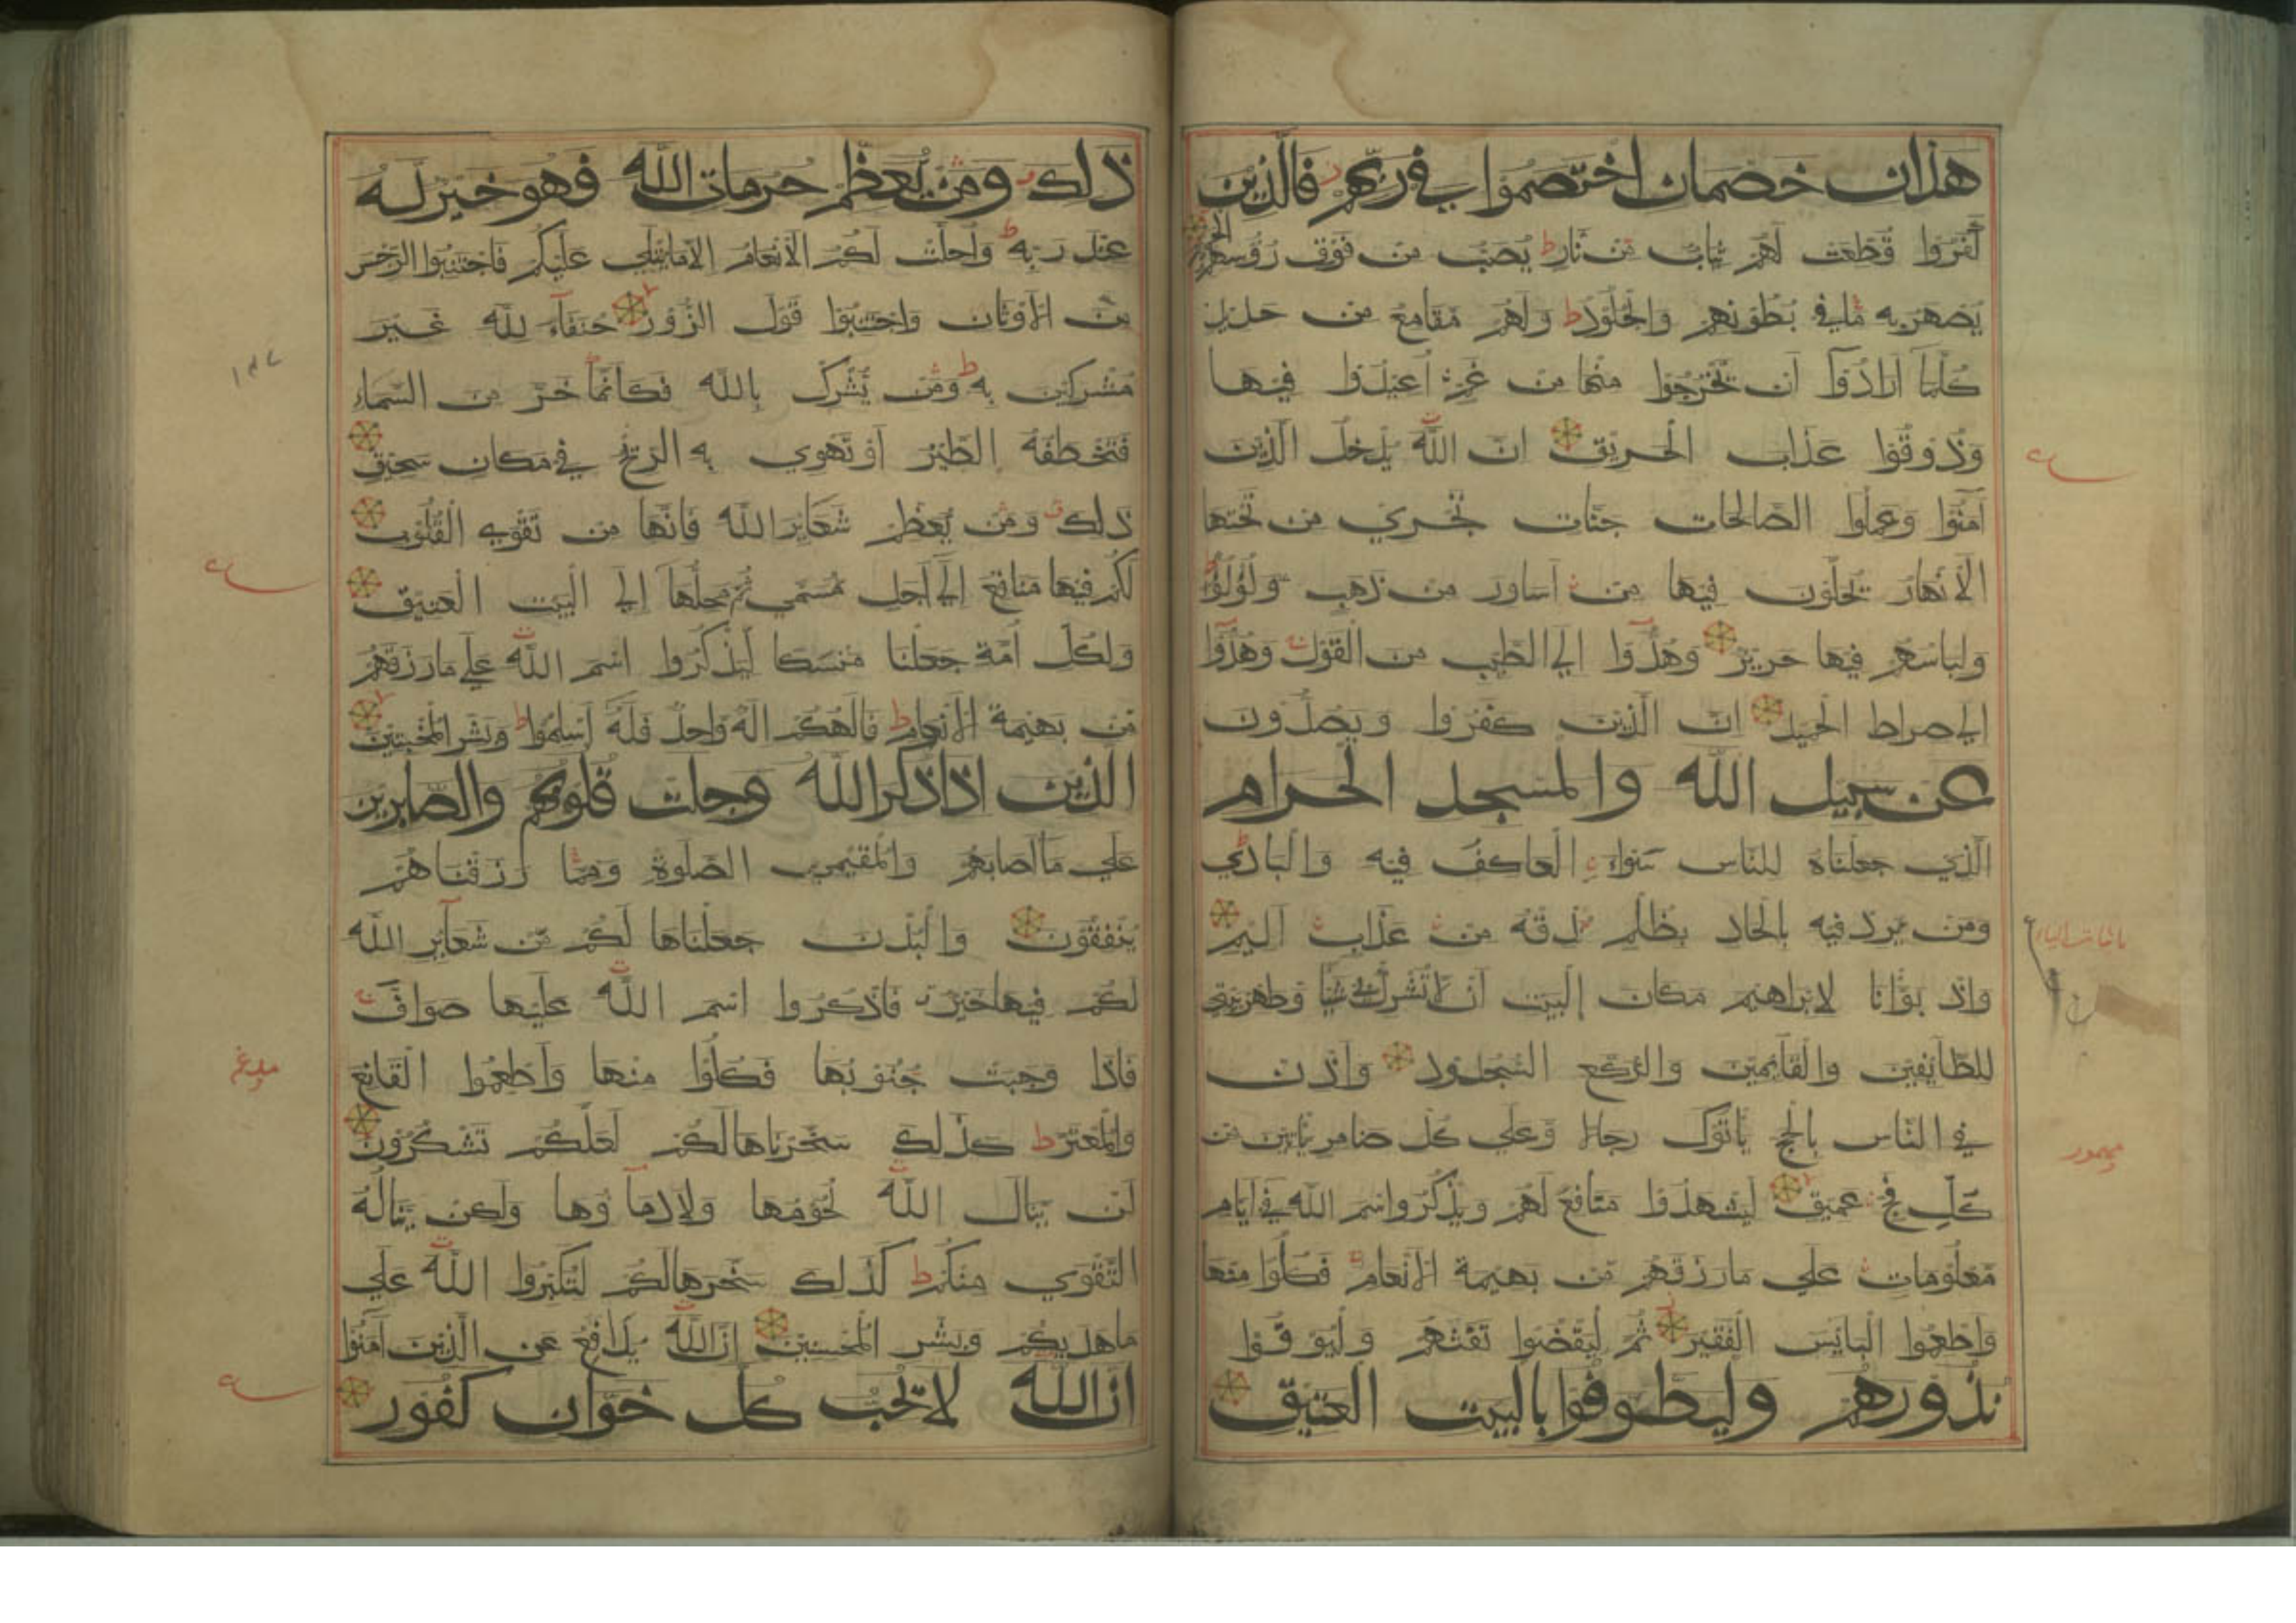 هذان خصمان اختصموا في ربهم فالذين
كفروا قطعت لهم ثياب من نار ط يصب من فوق رؤسهم الحميم
يصهر به ما في بطونهم والجلود ط ولهم مقامع من حديد
كلما ارادوا ان يخرجوا منها من غم اعيدوا فيها
وذوقوا عذاب الحريق ان الله يدخل الذين
آمنوا وعملوا الصالحات جنات تجري من تحتها
الانهار يحلون فيها من اساور من ذهب ولؤلؤا
ولباسهم فيها حرير وهدوا الي الطيب من القول وهدوا
الي صراط الحميد ان الذين كفروا ويصدون
عن سبيل الله والمسجد الحرام
الذي جعلناه للناس سواء العاكف فيه والبادي
ومن يرد فيه بالحاد بظلم نذقه من عذاب اليم
واذ بوانا لابراهيم مكان البيت ان لا تشرك بي شيا وطهر بيتي
للطايفين والقايمين والركع السجود واذن
في الناس بالحج ياتوك رجالا وعلي كل ضامر ياتين من
كل فج عميق ليشهدوا منافع لهم ويذكروا اسم الله في ايام
معلومات علي ما رزقهم من بهيمة الانعام فكلوا منها
واطعموا البايس الفقير ثم ليقضوا تفثهم وليوفوا
نذورهم وليطوفوا بالبيت العتيق
ذلك ومن يعظم حرمات الله فهو خير له
عند ربه ط واحلت لكم الانعام الا ما يتلي عليكم فاجتنبوا الرجس
من الاوثان واجتنبوا قول الزور حنفاء لله غير
مشركين به ط ومن يشرك بالله فكانما خر من السماء
فتخطفه الطير او تهوي به الريح في مكان سحيق
ذلك ومن يعظم شعاير الله فانها من تقوي القلوب
لكم فيها منافع الي اجل مسمي ثم محلها الي البيت العتيق
ولكل امة جعلنا منسكا ليذكروا اسم الله علي ما رزقهم
من بهيمة الانعام ط فالهكم اله واحد فله اسلموا ط وبشر المخبتين
الذين اذا ذكر الله وجلت قلوبهم والصابرين
علي ما اصابهم والمقيمي الصلوة ومما رزقناهم
ينفقون والبدن جعلناها لكم من شعاير الله
لكم فيها خير فاذكروا اسم الله عليها صواف
فاذا وجبت جنوبها فكلوا منها واطعموا القانع
والمعتر ط كذلك سخرناها لكم لعلكم تشكرون
لن ينال الله لحومها ولا دماوها ولكن يناله
التقوي منكم ط كذلك سخرها لكم لتكبروا الله علي
ما هديكم وبشر المحسنين ان الله يدافع عن الذين آمنوا
ان الله لا يحب كل خوان كفور
مدغم